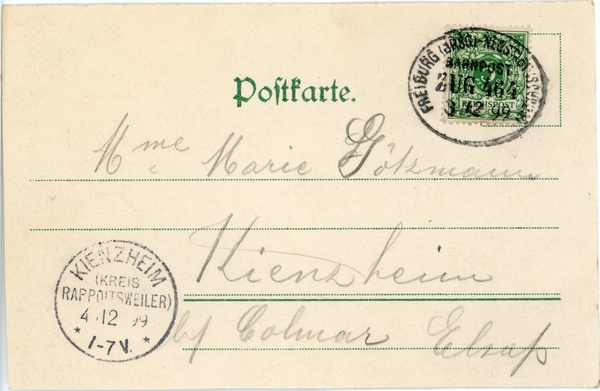 FREIBURG (BRSG)-NEUSTADT (SCHW
BAHNPOST
ZUG 464
3 12 99
REICHSPOST
Postkarte.
Mme Marie Götzmann
Kienzheim
KIENZHEIM
(KREIS
RAPPOLTSWEILER)
4.12 99
* 1-7 V. *
b/ Colmar Elsaß